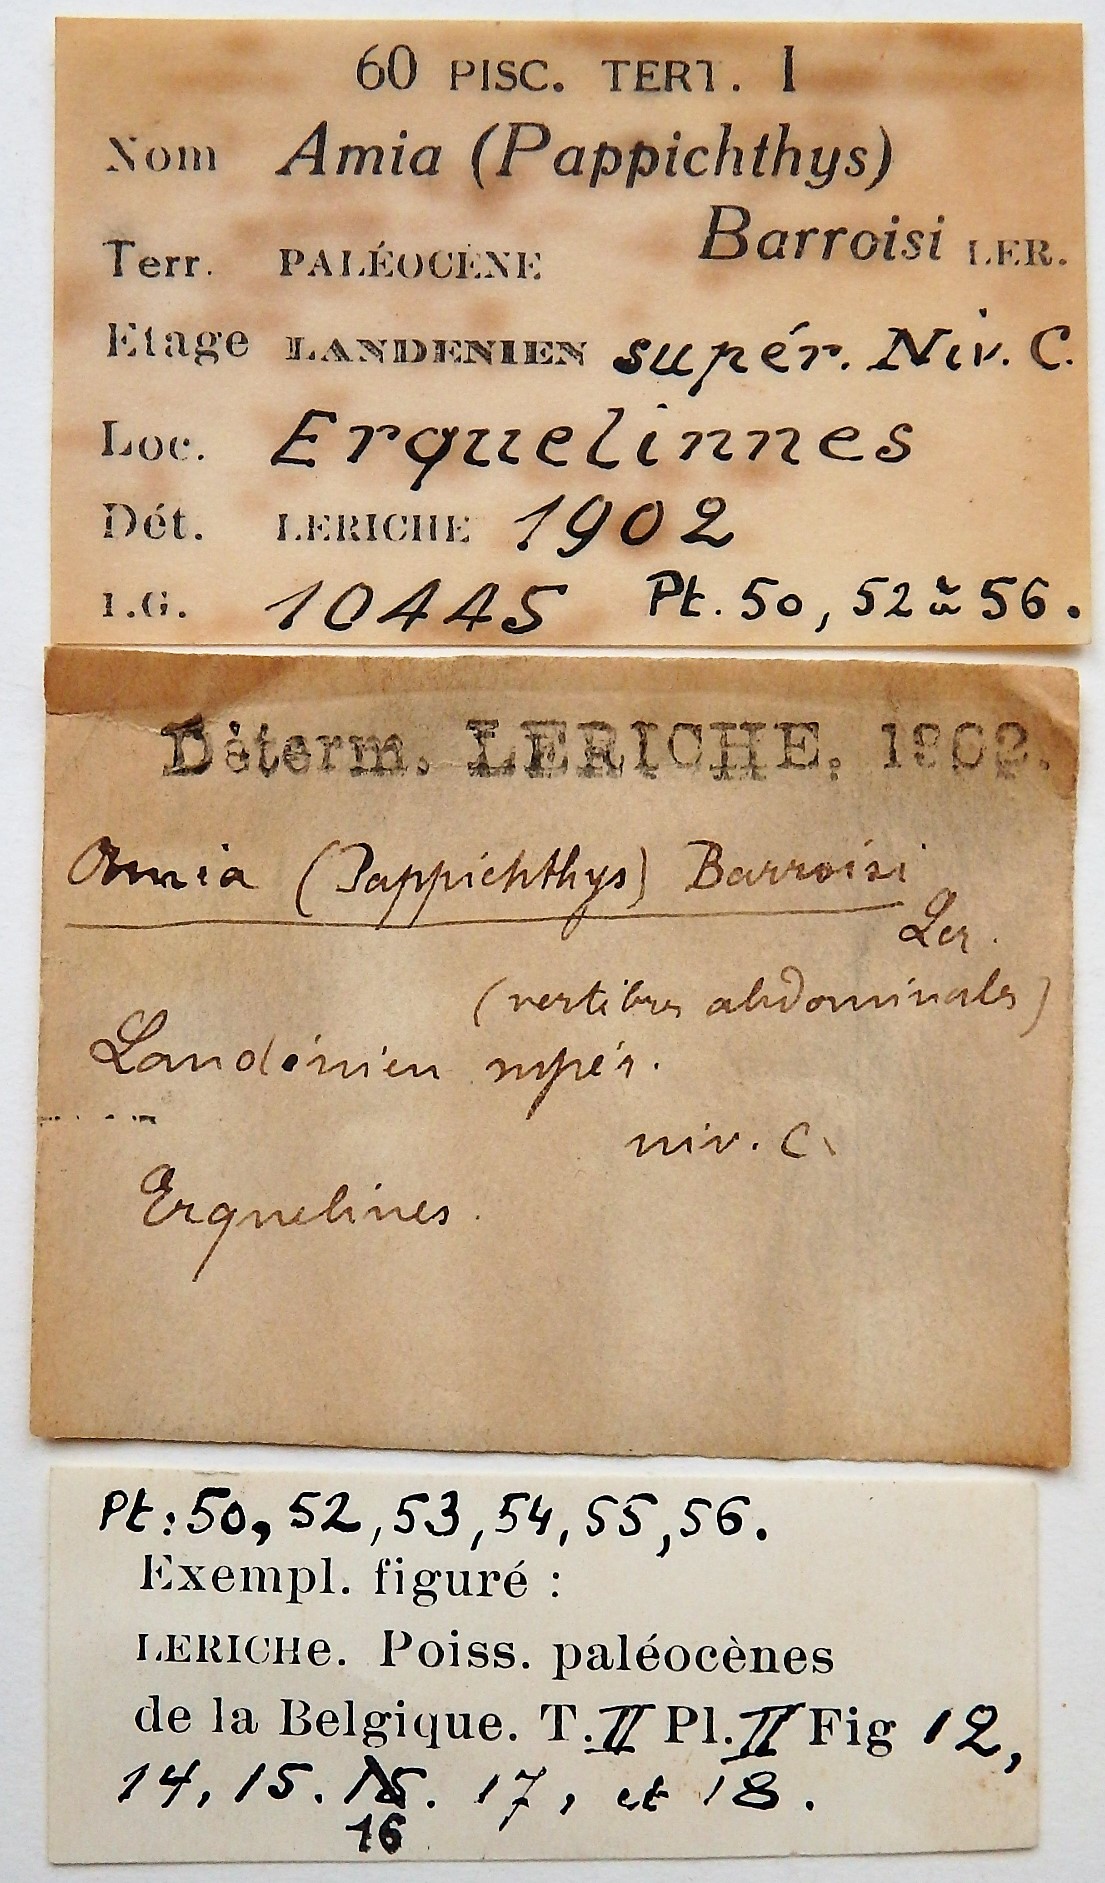 60 PISC. TERT. I
Nom Amia (Pappichthys)
Barroisi LER.
Terr. PALÉOCÈNE
Etage LANDENIEN supér. Niv. C.
Loc. Erquelinnes
Dét. LERICHE 1902
I.G. 10445 Pt. 50, 52 à 56.
Déterm. LERICHE. 1902.
Amia (Pappichthys) Barroisi
Ler.
(vertèbres abdominales)
Landénien supér.
niv. C.
Erquelines.
Pt: 50, 52, 53, 54, 55, 56.
Exempl. figuré :
LERICHe. Poiss. paléocènes
de la Belgique. T. II Pl. II Fig 12,
14, 15. 17, et 18.
16